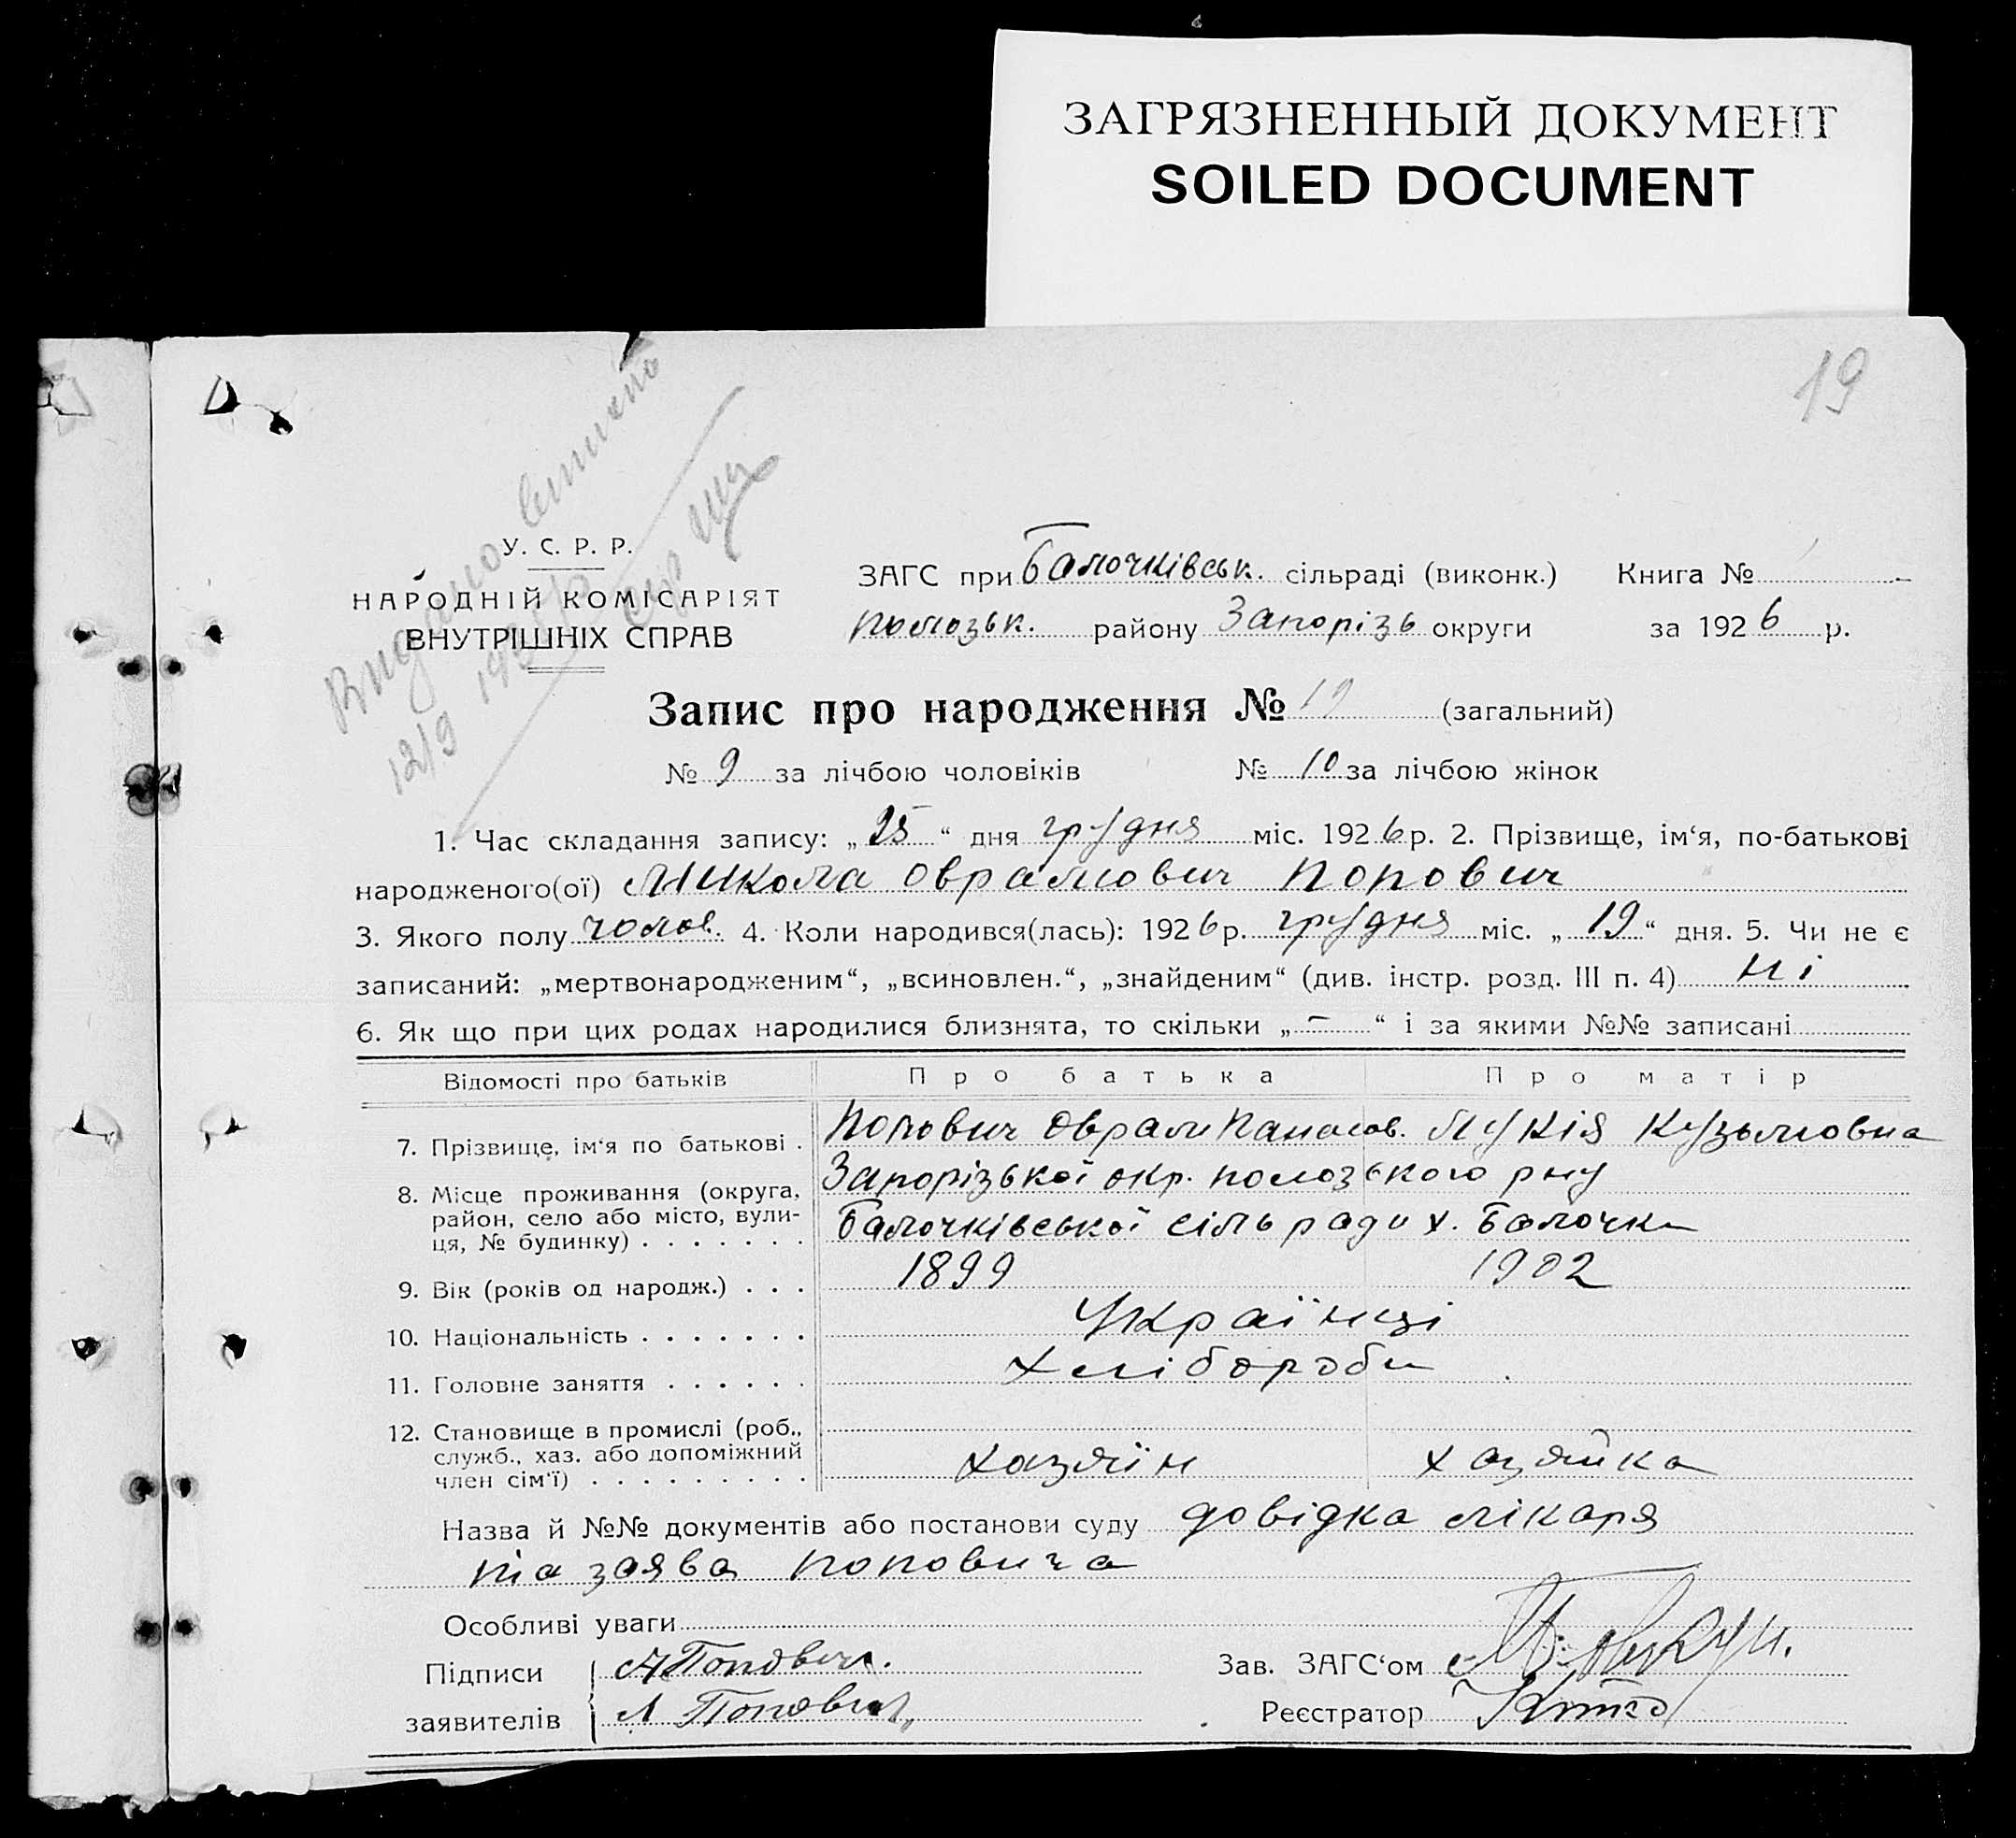 ЗАГРЯЗНЕННЫЙ ДОКУМЕНТ
SOILED DOCUMENT
19
Видано
12/9
У. С. Р. Р.
НАРОДНІЙ КОМІСАРІЯТ
ВНУТРІШНІХ СПРАВ
ЗАГС при Балочківськ. сільраді (виконк.) Книга №
пологзьк. району Запорізь округи за 1926 р.
Запис про народження № 19 (загальний)
№ 9 за лічбою чоловіків № 10 за лічбою жінок
1. Час складання запису: „25“ дня грудня міс. 1926 р. 2. Прізвище, ім‘я, по-батькові
народженого(ої) Микола Оврамович Попович
3. Якого полу чолов. 4. Коли народився(лась): 1926 р. грудня міс. „19“ дня. 5. Чи не є
записаний: „мертвонародженим“, „всиновлен.“, „знайденим“ (див. інстр. розд. III п. 4) Ні
6. Як що при цих родах народилися близнята, то скільки „–“ і за якими №№ записані
Відомості про батьків Про батька Про матір
7. Прізвище, ім‘я по батькові . Попович Оврам Панасов. Лукія Кузьмовна
8. Місце проживання (округа, Запорізької окр. пологзького рну
район, село або місто, вули- Балочківської сільради х. Балочки
ця, № будинку) . . . . . . .
9. Вік (років од народж.) . . . 1899 1902
10. Національність . . . . . . . Українці
11. Головне заняття . . . . . . Хлібороби
12. Становище в промислі (роб.,
служб., хаз. або допоміжний хазяїн хазяйка
член сім‘ї) . . . . . . . . .
Назва й №№ документів або постанови суду довідка лікаря
та заява Поповича
Особливі уваги
Підписи А Попович. Зав. ЗАГС‘ом
заявителів Л Попович Реєстратор